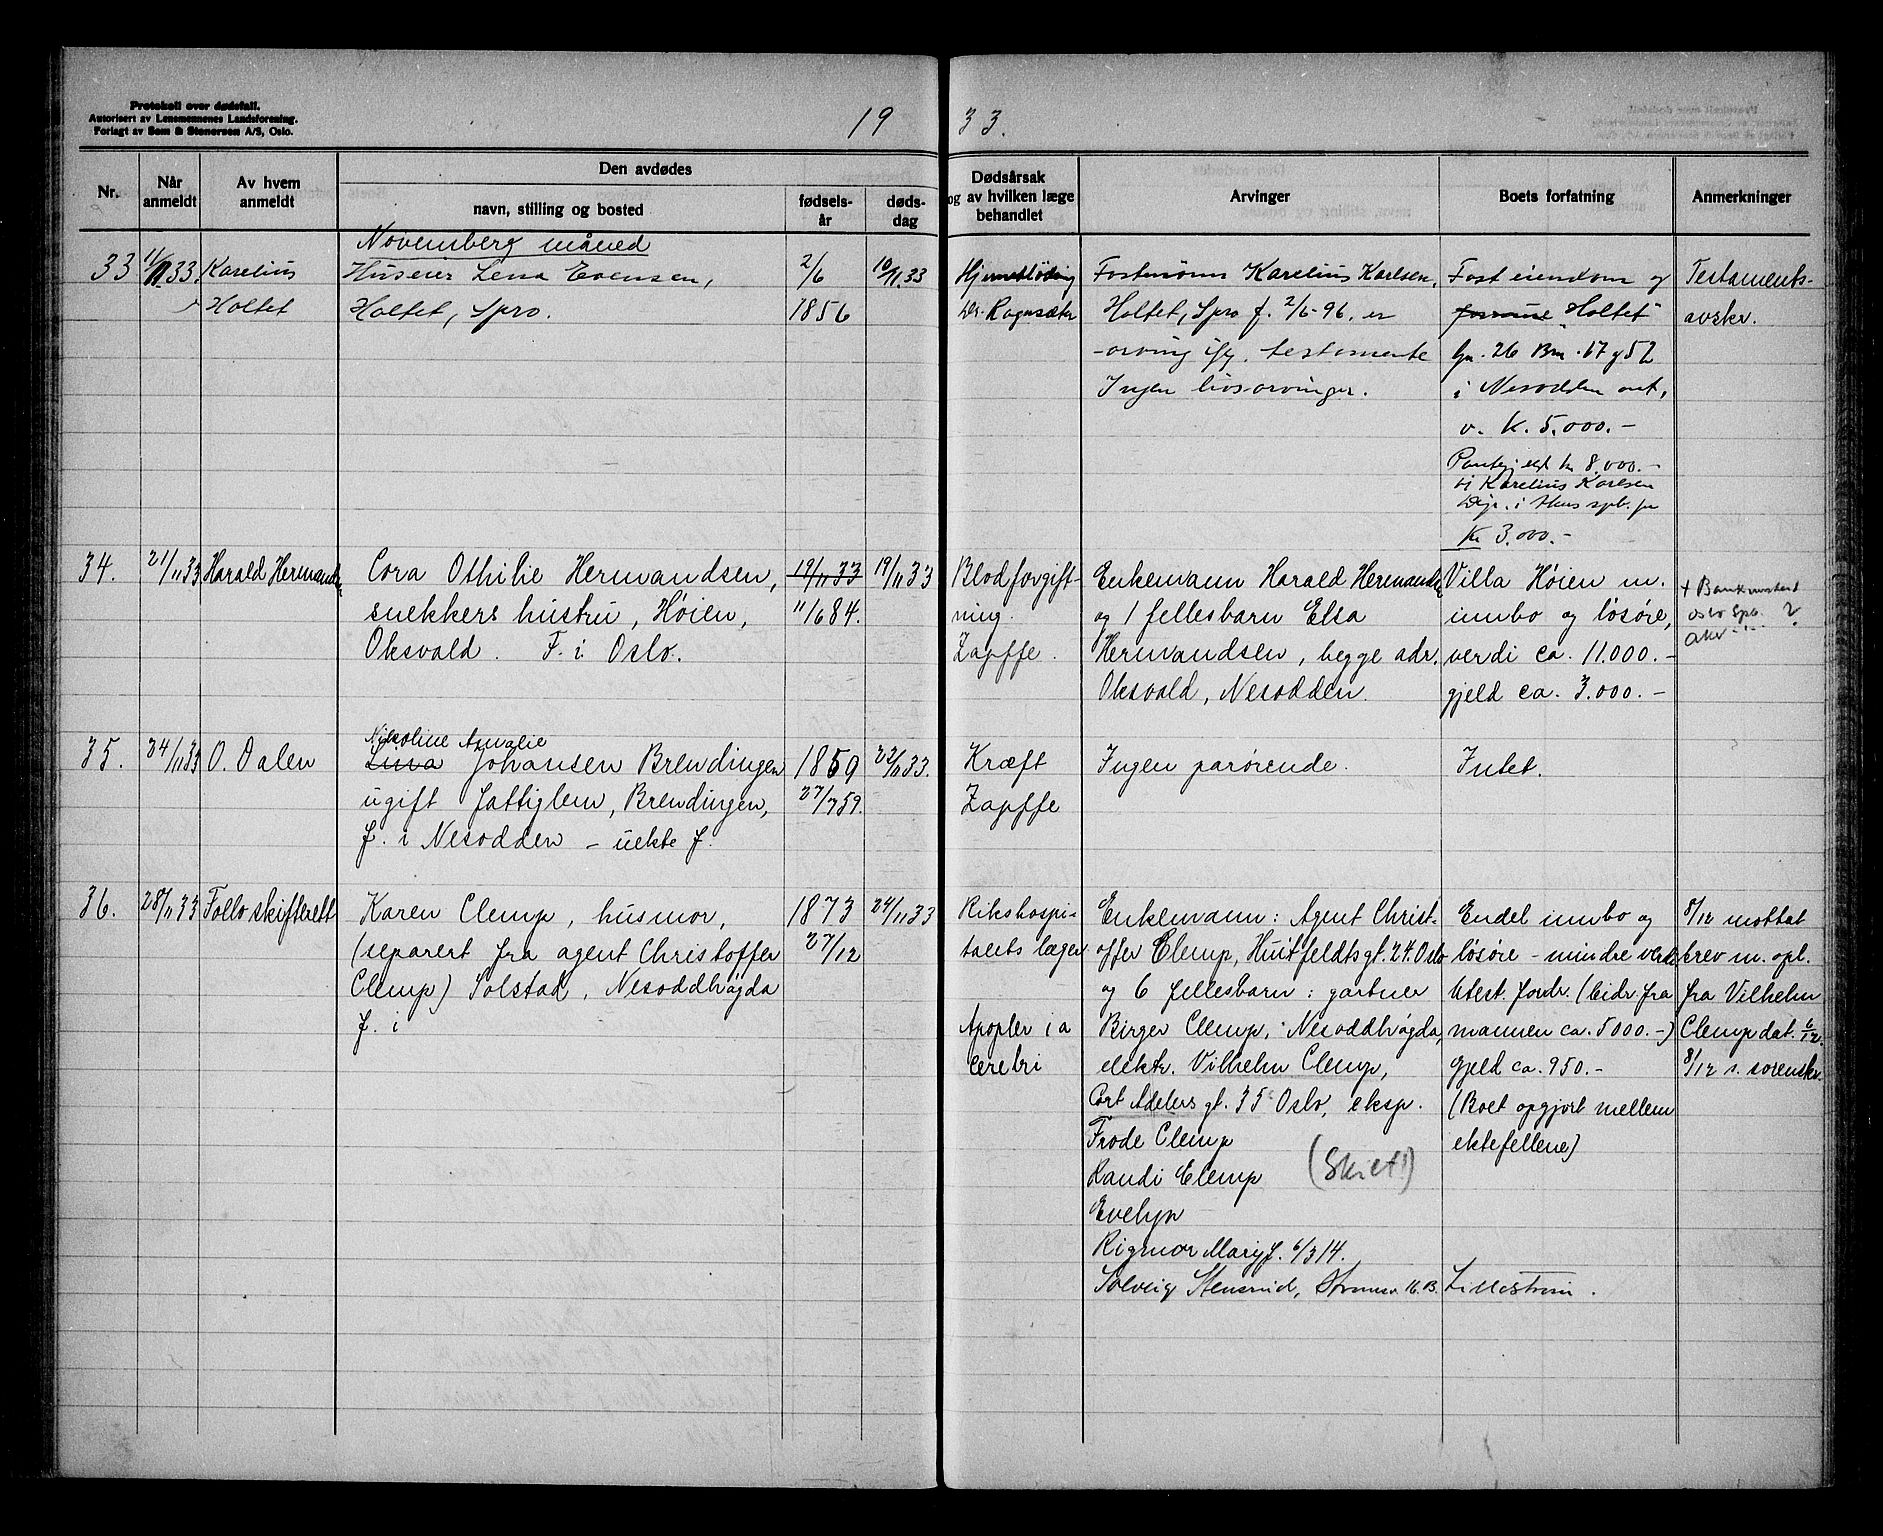 Protokoll over dødsfall.
Autorisert av Lensmennenes Landsforening.
Forlagt av Sem & Stenersen A/S, Oslo.
1933.
Nr.
Når anmeldt
Av hvem anmeldt
Den avdødes
navn, stilling og bosted
fødsels-år
døds-dag
Dødsårsak og av hvilken læge behandlet
Arvinger
Boets forfatning
Anmerkninger
Novemberg måned
33 11/11 33. Karelius Huseier Lena Evensen, 2/6 10/11.33
Holtet Holtet, Spro. 1856
Hjerneblødning
Dr. Rognsæter
Fostersønn Karelius Karlsen,
Holtet, Spro f. 2/6-96. er
arving ifg. testamente
Ingen livsarvinger.
Fast eiendom og
"Holtet"
Gn. 26 Bm. 17 g 52
i Nesodden ant.
v. K. 5.000.-
kr 8.000.-
Karelius Karlsen
Kr 3.000.-
Testaments-
avskr.
34. 21/11 33 Harald Hermandsen Cora Othilie Hermandsen, 19/11 33 19/11 33
snekkers hustru, Høien, 11/6 84.
Oksvald. F. i Oslo.
Blodforgift-
ning.
Zapffe.
Enkemann Harald Hermandsen
og 1 fellesbarn Elsa
Hermandsen, begge adr.
Oksvald, Nesodden.
Villa Høien m.
innbo og løsøre,
verdi ca. 11.000.-
gjeld ca. 3.000.-
+ Bankinnskud
Oslo Spb. ?
Akr
35. 24/11 33 O. Dalen
Nikoline Amalie
Lina Johansen Brendingen 1859 22/11 33.
ugift fattiglem, Brendingen, 27/7 59.
f. i Nesodden - uekte f.
Kræft
Zapffe
Ingen pårørende.
Intet.
36. 28/11 33 Follo skifterett Karen Clemp, husmor, 1873 24/11 33
(separert fra agent Christoffer 27/12
Clemp) Solstad, Nesoddhøgda
f. i
Rikshospi-
talets læger.
Apoplexia
cerebri
Enkemann: Agent Christ-
offer Clemp, Huitfeldtsgt. 24. Oslo
og 6 fellesbarn: gartner
Birger Clemp, Nesoddhøgda,
elektr. Vilhelm Clemp,
Cort Adelersgt. 35 Oslo, eksp.
Frode Clemp
Randi Clemp (Skiet!)
Evelyn
Rigmor Mary f. 6/3 14.
Solveig Stensrud, Strømsv. 16.B. Lillestrøm.
Endel innbo og
løsøre - mindre verdi
Utest. fordr. (bidr. fra
mannen ca. 5000.-)
Gjeld ca. 950.-
(Boet opgjort mellem
ektefellene)
8/12 mottat
brev m. opl.
fra Vilhelm
Clemp dat. 6/12.
8/12 s. sorenskr.